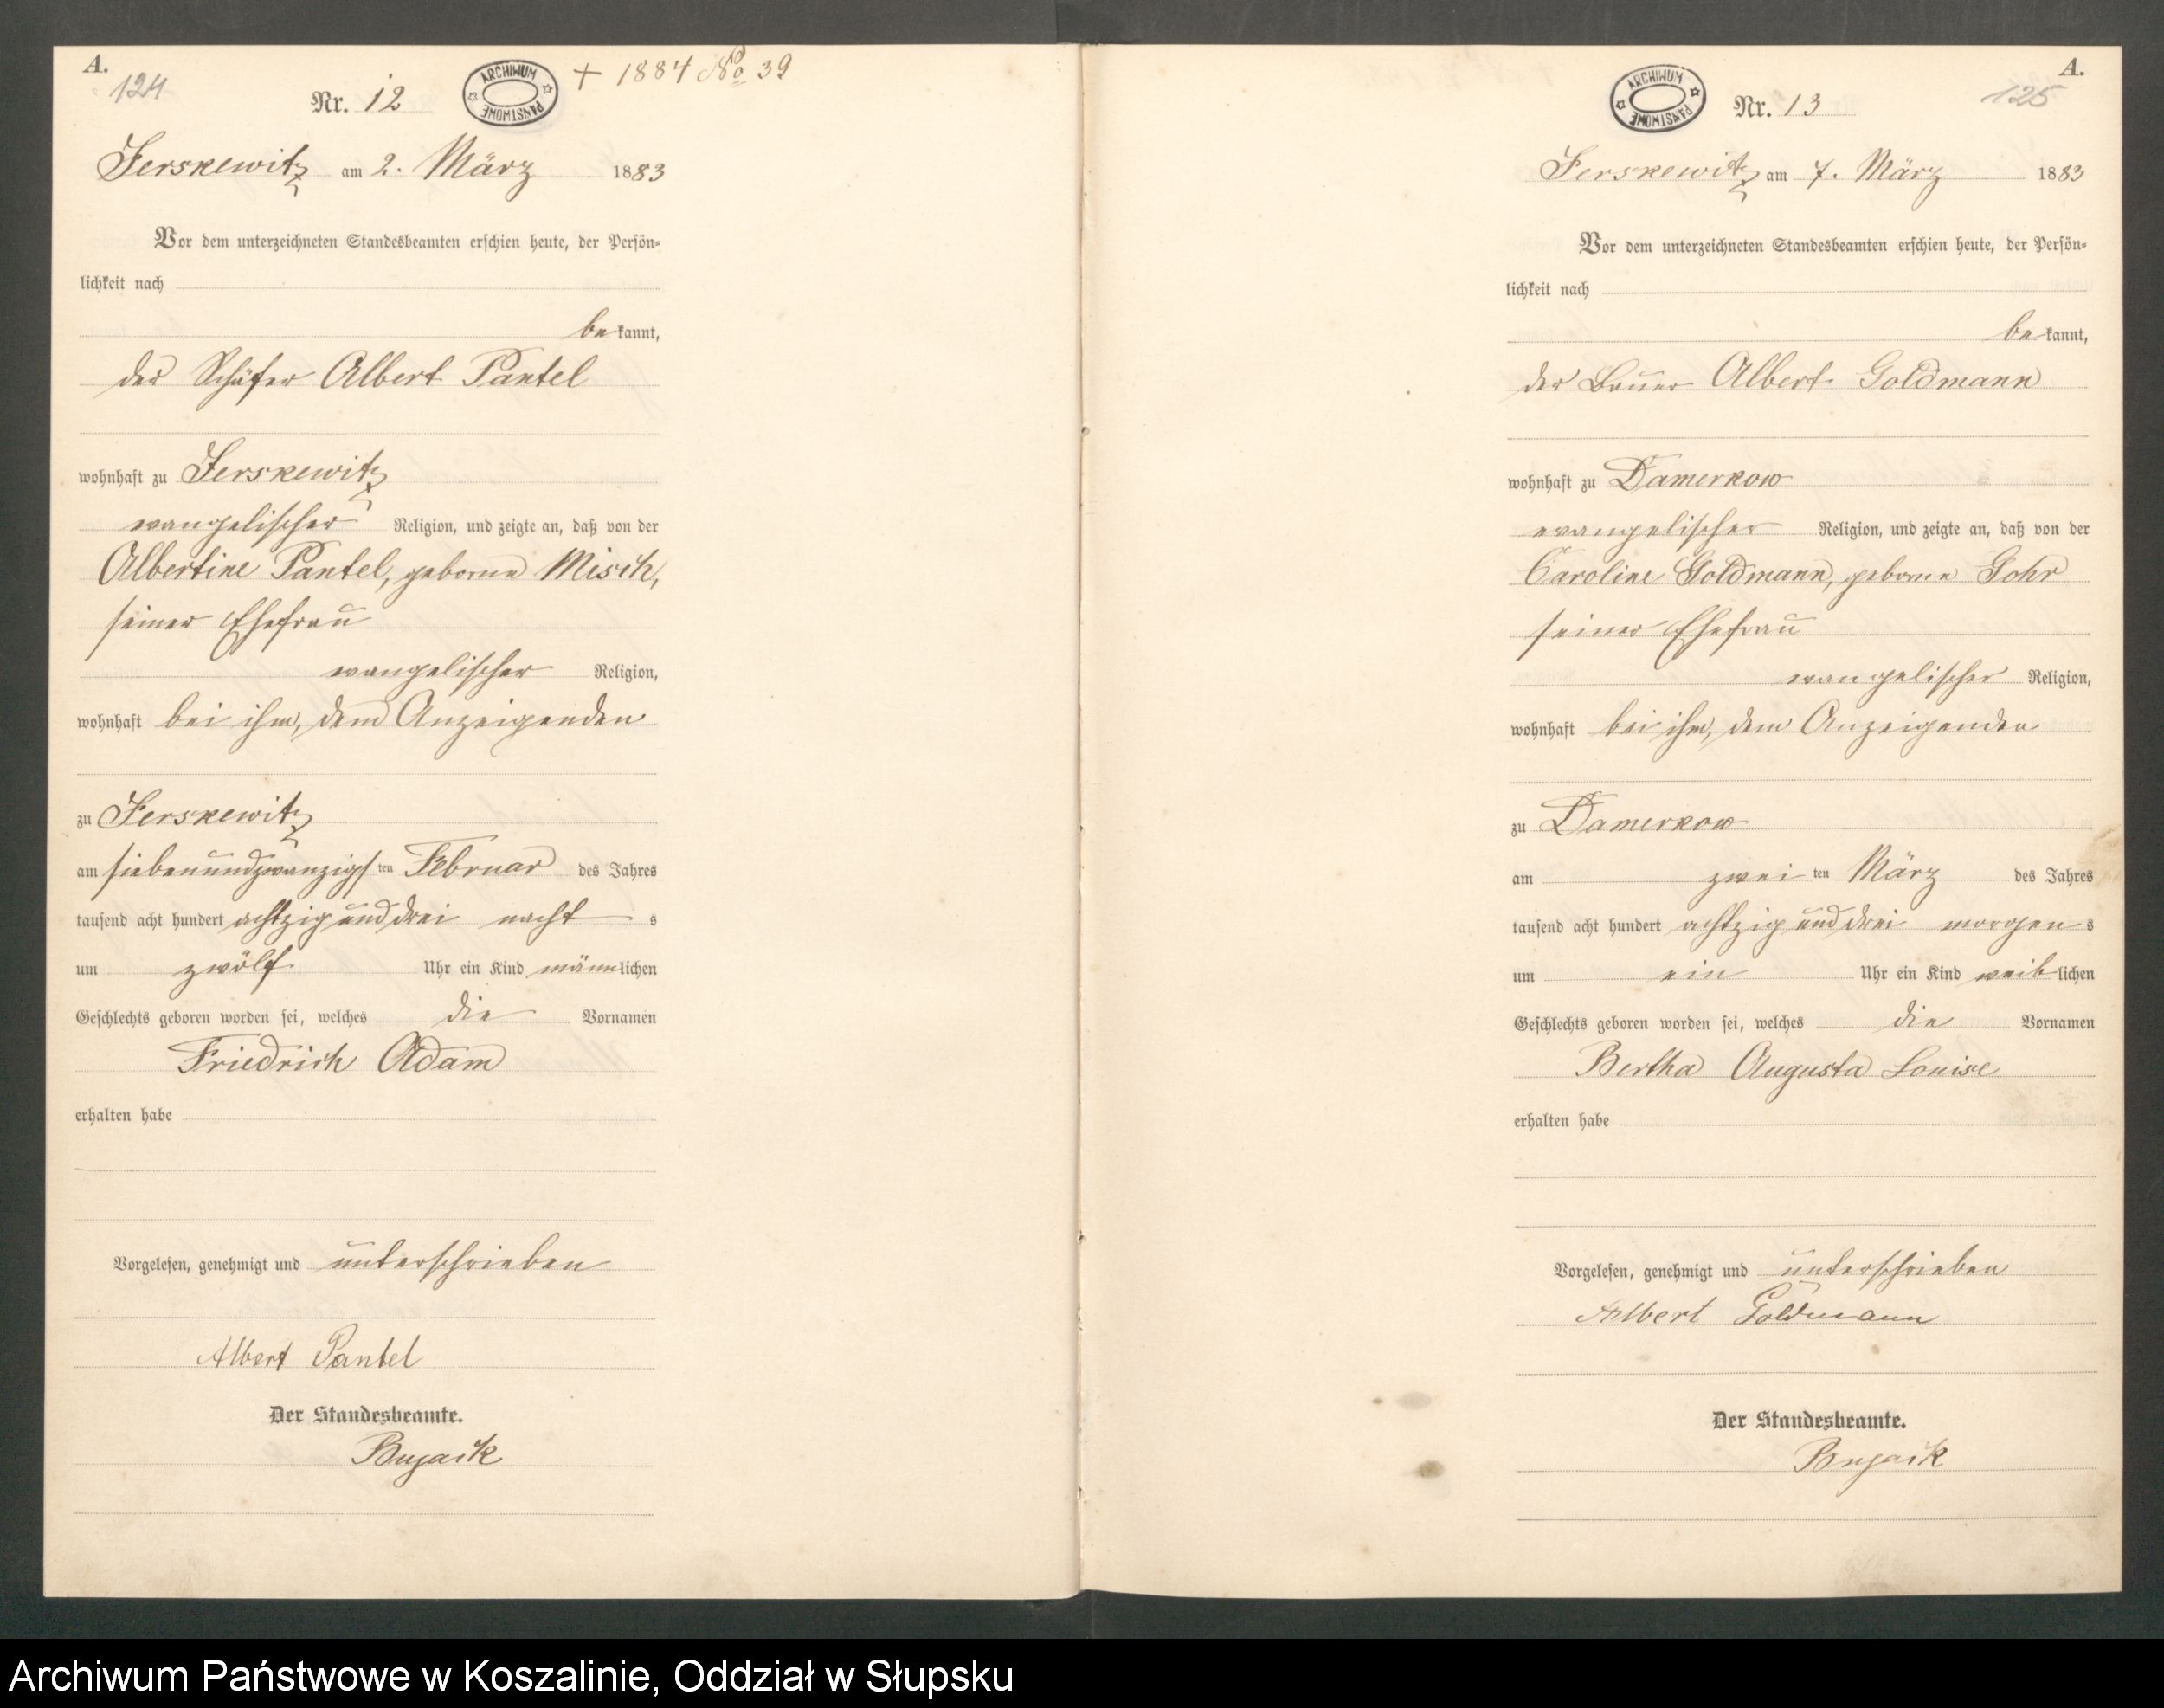 A.
124
Nr. 12
ARCHIWUM PAŃSTWOWE
+ 1884 No 39
Jerskewitz am 2. März 1883
Vor dem unterzeichneten Standesbeamten erschien heute, der Persön-
lichkeit nach
bekannt,
der Schäfer Albert Pantel
wohnhaft zu Jerskewitz
evangelischer Religion, und zeigte an, daß von der
Albertine Pantel, geborne Misch,
seiner Ehefrau
evangelischer Religion,
wohnhaft bei ihm, dem Anzeigenden
zu Jerskewitz
am siebenundzwanzigsten Februar des Jahres
tausend acht hundert achtzig und drei nachts
um zwölf Uhr ein Kind männlichen
Geschlechts geboren worden sei, welches die Vornamen
Friedrich Adam
erhalten habe
Vorgelesen, genehmigt und unterschrieben
Albert Pantel
Der Standesbeamte.
Bujack
A.
125
ARCHIWUM PAŃSTWOWE
Nr. 13
Jerskewitz am 7. März 1883
Vor dem unterzeichneten Standesbeamten erschien heute, der Persön-
lichkeit nach
bekannt,
der Bauer Albert Goldmann
wohnhaft zu Damerkow
evangelischer Religion, und zeigte an, daß von der
Caroline Goldmann, geborne Gohr
seiner Ehefrau
evangelischer Religion,
wohnhaft bei ihm, dem Anzeigenden
zu Damerkow
am zweiten März des Jahres
tausend acht hundert achtzig und drei morgens
um ein Uhr ein Kind weiblichen
Geschlechts geboren worden sei, welches die Vornamen
Bertha Augusta Louise
erhalten habe
Vorgelesen, genehmigt und unterschrieben
Albert Goldmann
Der Standesbeamte.
Bujack
Archiwum Państwowe w Koszalinie, Oddział w Słupsku